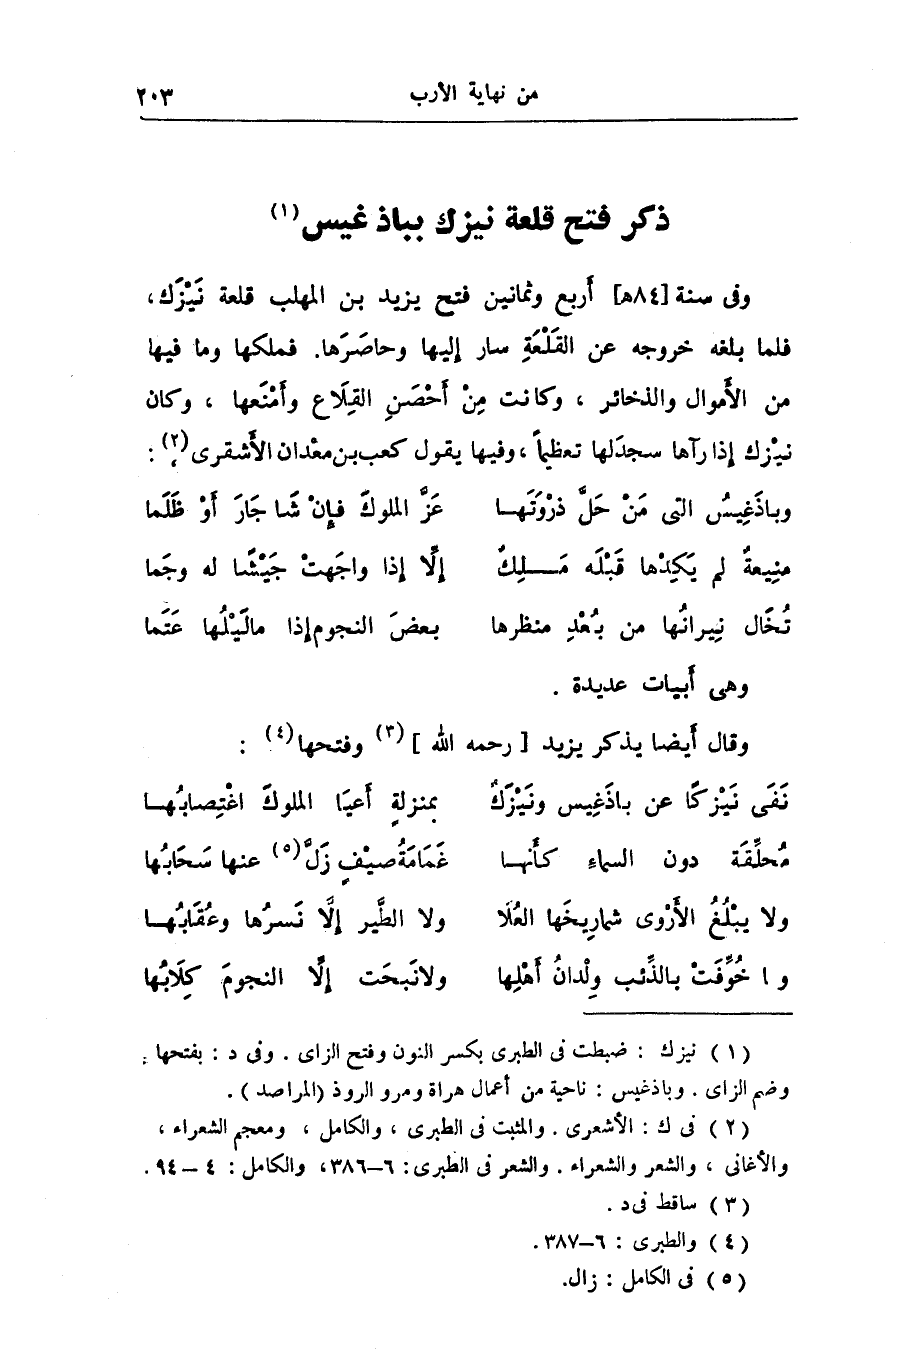 من نهاية الأرب ٢٠٣
ذكر فتح قلعة نيزك بباذ غيس(١)
وفى سنة [٨٤ه] أربع وثمانين فتح يزيد بن المهلب قلعة نَيْزَك،
فلما بلغه خروجه عن القَلْعَةِ سار إليها وحاصَرَها. فملكها وما فيها
من الأموال والذخائر ، وكانت مِنْ أَحْصَنِ القِلَاع وأَمْنَعها ، وكان
نيْزك إذا رآها سجدَلها تعظيماً ،وفيها يقول كعب بن معْدان الأشقرى(٢) :
وباذَغِيسُ التى مَنْ حَلَّ ذرْوَتَهـا عَزَّ الملوكَ فإِنْ شَا جَارَ أَوْ ظَلَما
منِيعةٌ لم يَكِدْها قَبْلَه مَـــلِكٌ إِلَّا إذا واجَهتْ جَيْشًا له وجَما
تُخَال نِيرانُها من بُعْدِ منظرها بعضَ النجوم إذا مالَيْلُها عَتَما
وهى أبيات عديدة .
وقال أيضا يذكر يزيد [ رحمه الله ](٣) وفتحها(٤) :
نَفَى نَيْزكًا عن باذَغِيس ونَيْزَكٌ بمنزلةٍ أَعيَا الملوكَ اغْتِصابُهـا
مُحلِّقَة دون السماءِ كأَنهـا غَمَامَةُ صيْفٍ زَلَّ(٥) عنها سَحَابُها
ولا يبْلُغُ الأَرْوى شماريخَها العُلَا ولا الطَّير إِلَّا نَسرُها وعُقَابُهـا
و ا خُوِّفَتْ بالذِّئب ولْدانُ أَهْلِها ولا نَبحَت إِلَّا النجومَ كِلَابُها
(١) نيزك : ضبطت فى الطبرى بكسر النون وفتح الزاى . وفى د : بفتحها ؛
وضم الزاى . وباذغيس : ناحية من أعمال هراة ومرو الروذ (المراصد ) .
(٢) فى ك : الأشعرى . والمثبت فى الطبرى ، والكامل ، ومعجم الشعراء ،
والأغانى ، والشعر والشعراء . والشعر فى الطبرى : ٦–٣٨٦، والكامل : ٤ – ٩٤ .
(٣) ساقط فى د .
(٤) والطبرى : ٦–٣٨٧ .
(٥) فى الكامل : زال.